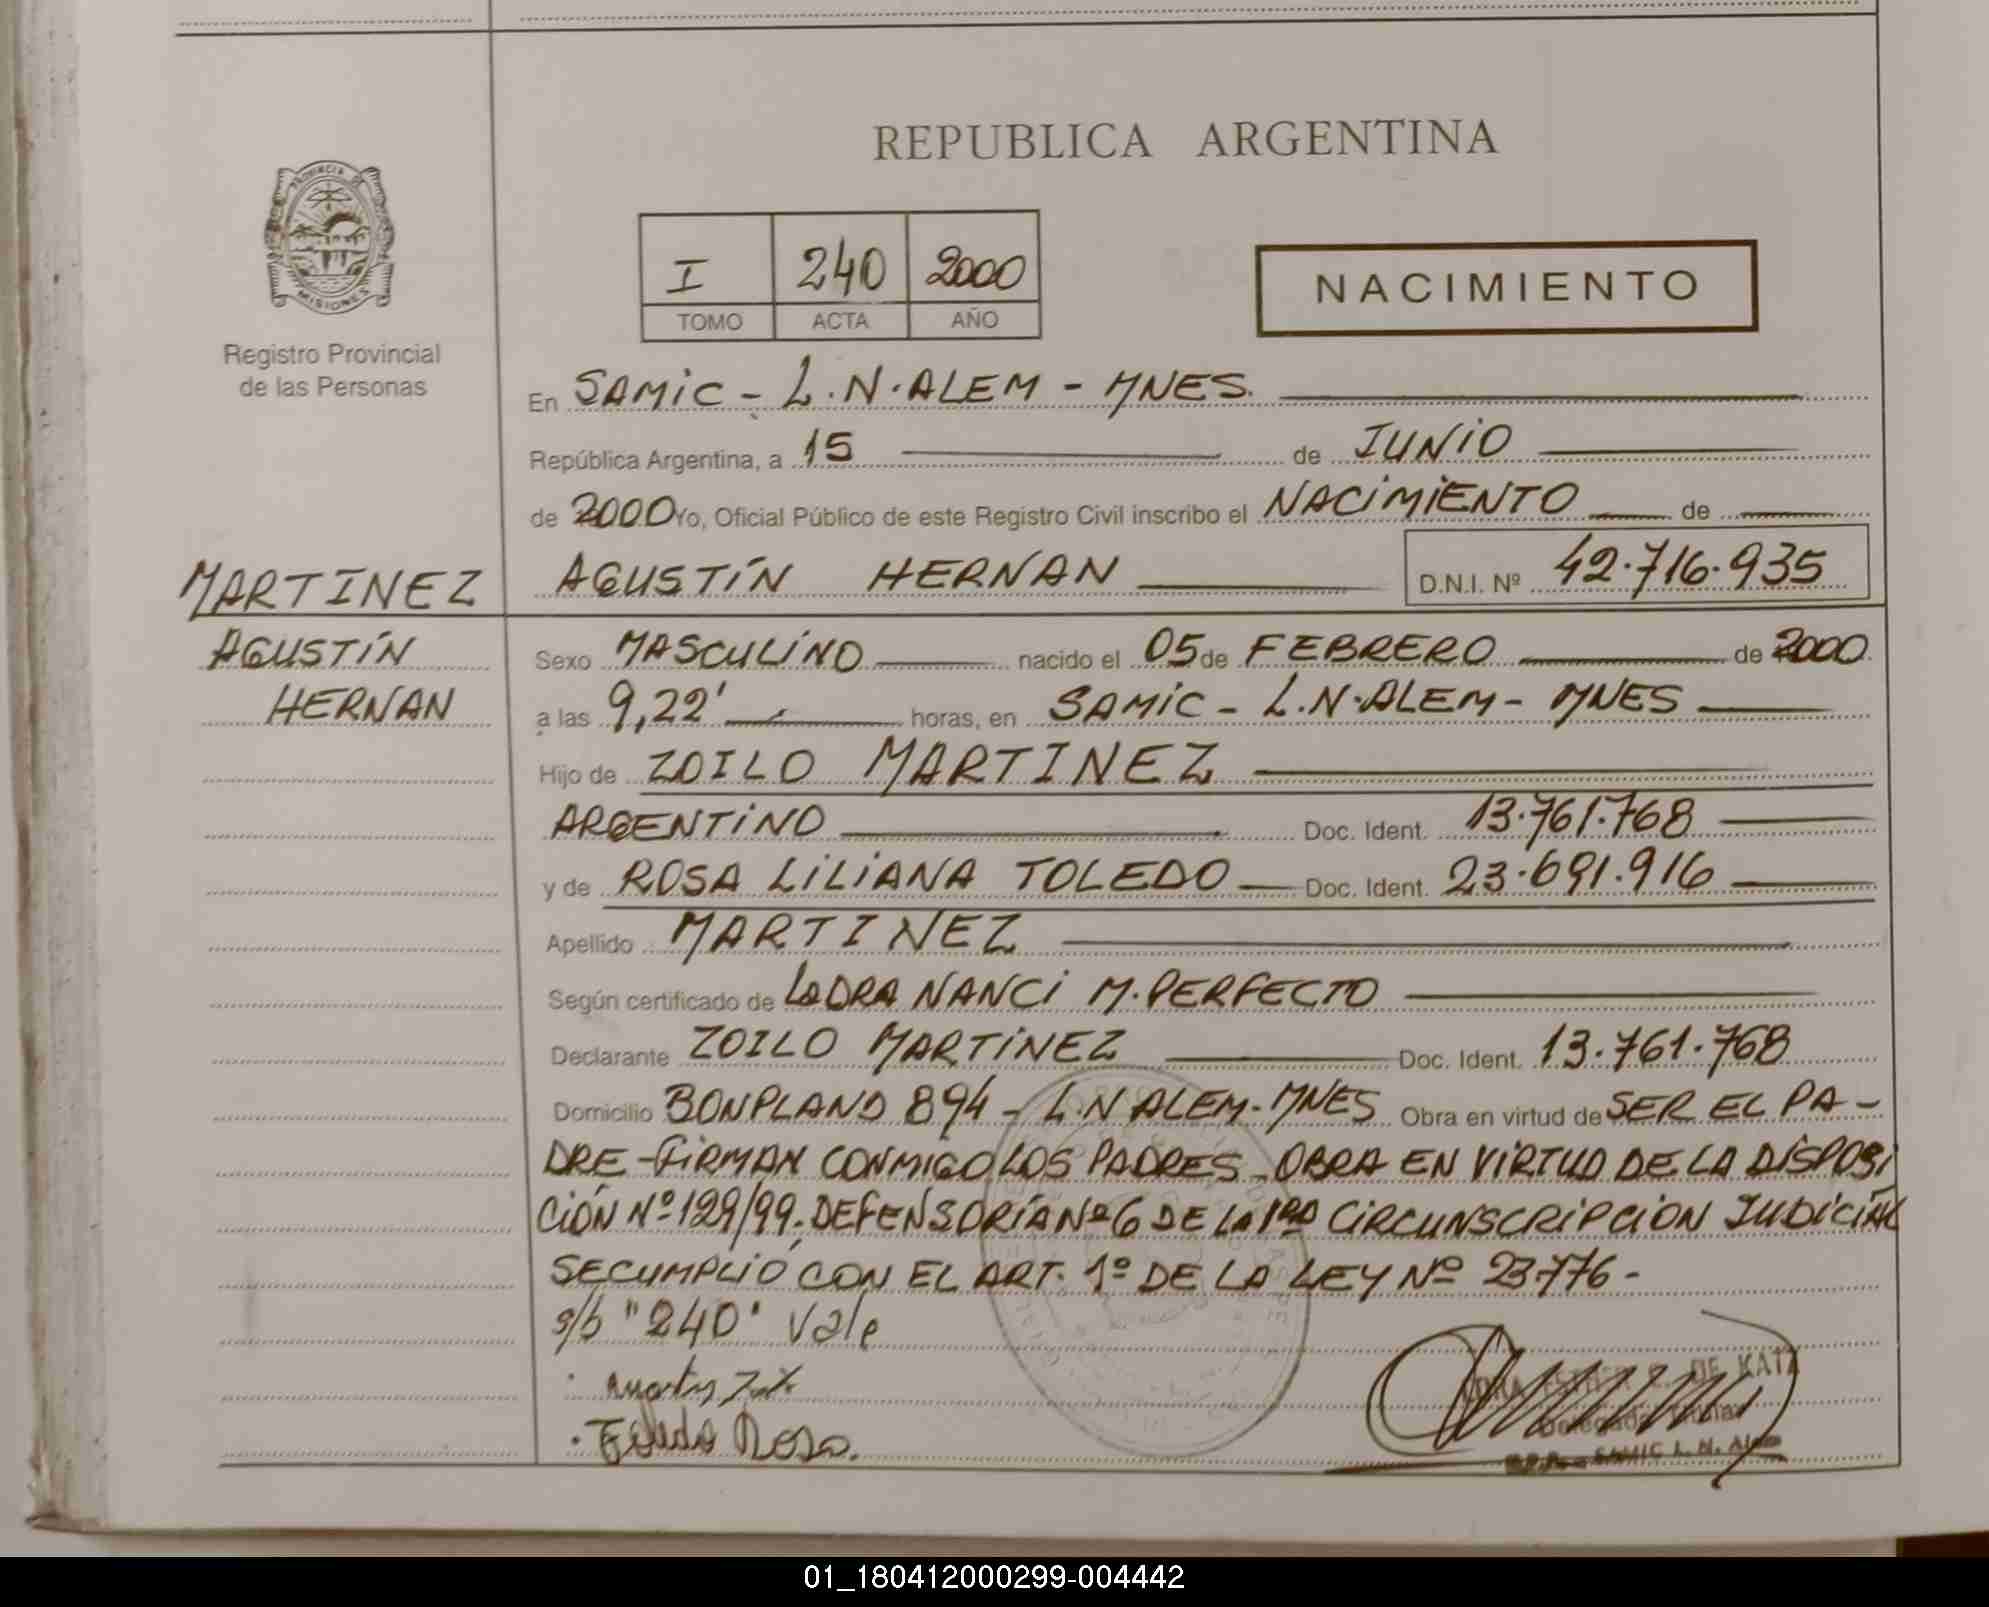 REPUBLICA ARGENTINA
PROVINCIA DE MISIONES
I 240 2000
TOMO ACTA AÑO
NACIMIENTO
Registro Provincial
de las Personas
En SAMIC - L.N. ALEM - MNES.
República Argentina, a 15 de JUNIO
de 2000 Yo, Oficial Público de este Registro Civil inscribo el NACIMIENTO de
MARTINEZ AGUSTÍN HERNAN D.N.I. Nº 42.716.935
AGUSTÍN Sexo MASCULINO nacido el 05 de FEBRERO de 2000
HERNAN a las 9,22' horas, en SAMIC - L.N. ALEM - MNES
Hijo de ZOILO MARTINEZ
ARGENTINO Doc. Ident. 13.761.768
y de ROSA LILIANA TOLEDO Doc. Ident. 23.691.916
Apellido MARTINEZ
Según certificado de La DRA NANCI M. PERFECTO
Declarante ZOILO MARTINEZ Doc. Ident. 13.761.768
Domicilio BONPLAND 894 - L.N ALEM - MNES Obra en virtud de SER EL PA-
DRE - FIRMAN CONMIGO LOS PADRES - OBRA EN VIRTUD DE LA DISPOSI
CIÓN Nº 129/99. DEFENSORÍA Nº 6 DE LA 1RA CIRCUNSCRIPCION JUDICIAL
SE CUMPLIÓ CON EL ART. 1º DE LA LEY Nº 23.776 -
s/b "240" Vale
DE KATZ
Toledo Rosa.
Delegada Titular
SAMIC L. N. Alem
01_180412000299-004442